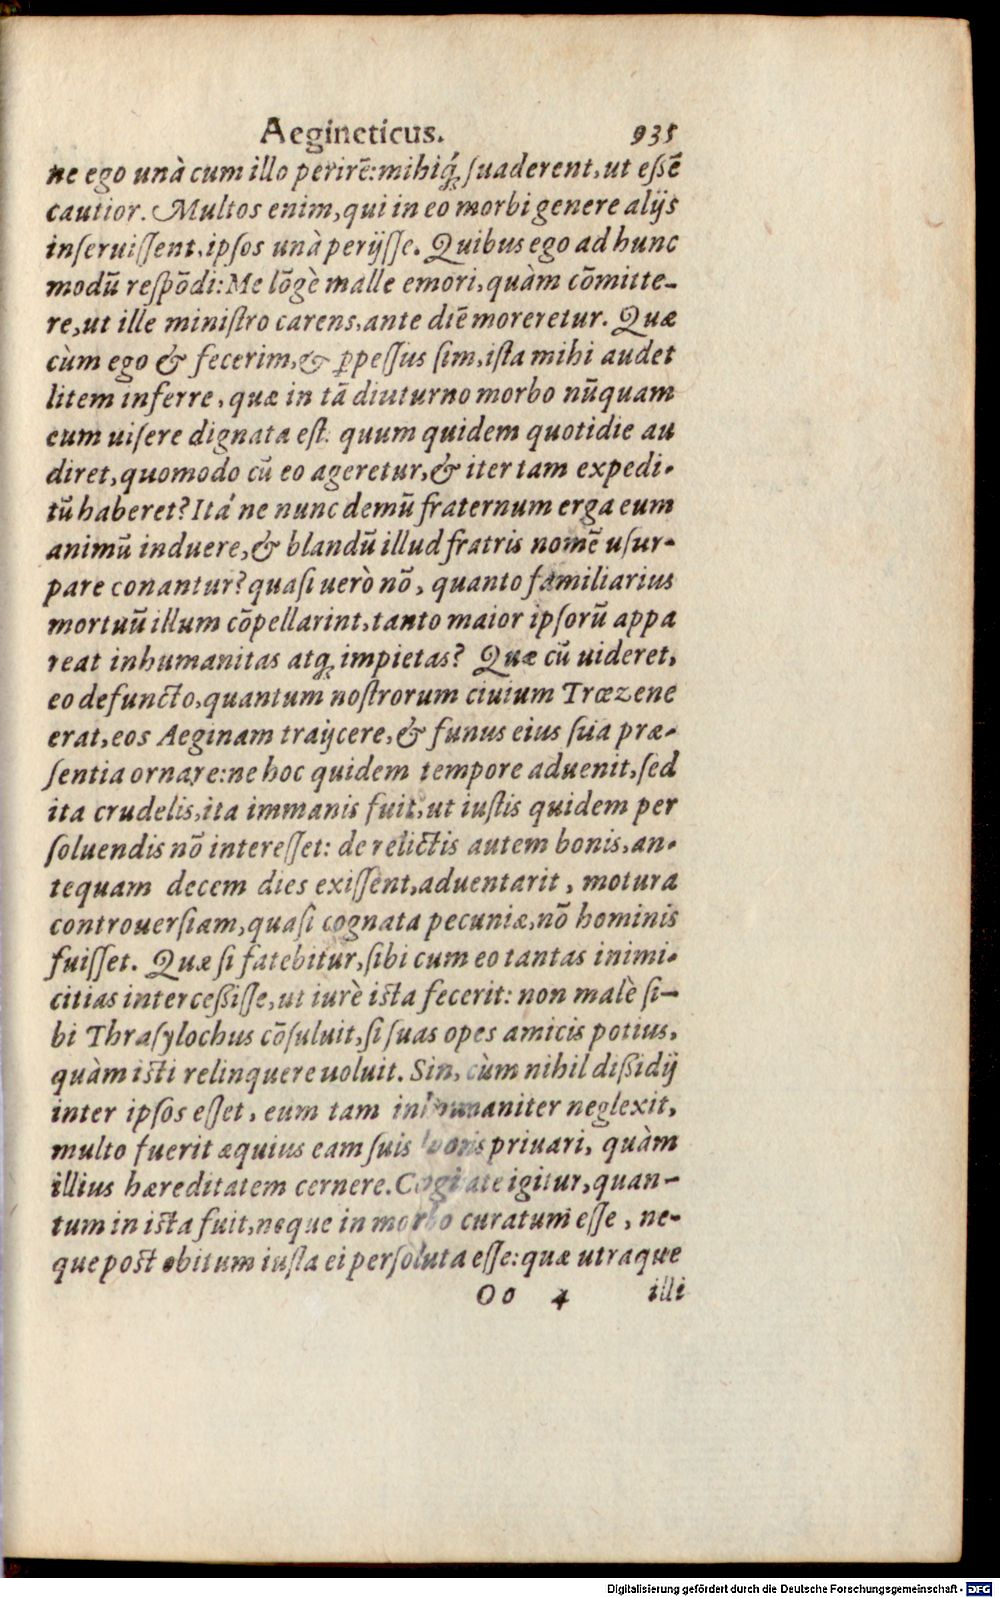 Aegineticus. 935
ne ego unà cum illo perirē: mihiq́; ſuaderent, ut eſſē
cautior. Multos enim, qui in eo morbi genere alijs
inſeruiſſent, ipſos unà perijſſe. Quibus ego ad hunc
modū reſpōdi: Me lōgè malle emori, quàm cōmitte-
re, ut ille miniſtro carens, ante diē moreretur. Quæ
cùm ego & fecerim, & ꝑpeſſus ſim, iſta mihi audet
litem inferre, quæ in tā diuturno morbo nūquam
eum uiſere dignata eſt: quum quidem quotidie au
diret, quomodo cū eo ageretur, & iter tam expedi-
tū haberet? Itá ne nunc demū fraternum erga eum
animū induere, & blandū illud fratris nomē uſur-
pare conantur? quaſi uerò nō, quanto familiarius
mortuū illum cōpellarint, tanto maior ipſorū appa
reat inhumanitas atq; impietas? Quæ cū uideret,
eo defuncto, quantum noſtrorum ciuium Træzene
erat, eos Aeginam traijcere, & funus eius ſua præ-
ſentia ornare: ne hoc quidem tempore aduenit, ſed
ita crudelis, ita immanis fuit, ut iuſtis quidem per
ſoluendis nō intereſſet: de relictis autem bonis, an-
tequam decem dies exiſſent, aduentarit, motura
controuerſiam, quaſi cognata pecuniæ, nō hominis
fuiſſet. Quæ ſi fatebitur, ſibi cum eo tantas inimi-
citias interceſſiſſe, ut iurè iſta fecerit: non malè ſi-
bi Thraſylochus cōſuluit, ſi ſuas opes amicis potius,
quàm iſti relinquere uoluit. Sin, cùm nihil diſſidij
inter ipſos eſſet, eum tam inhumaniter neglexit,
multo fuerit æquius eam ſuis bonis priuari, quàm
illius hæreditatem cernere. Cogitate igitur, quan-
tum in iſta fuit, neque in morbo curatum eſſe, ne-
que poſt obitum iuſta ei perſoluta eſſe: quæ utraque
Oo 4 illi
Digitalisierung gefördert durch die Deutsche Forschungsgemeinschaft - DFG